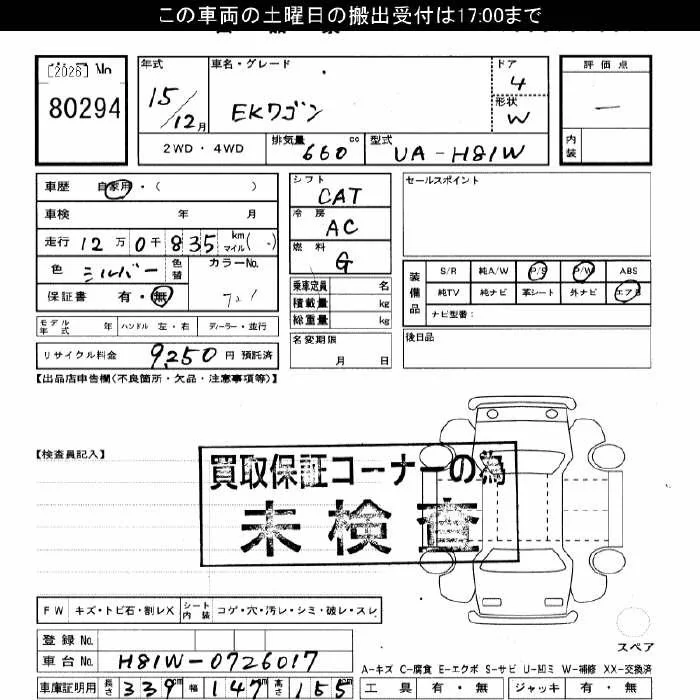 この車両の土曜日の搬出受付は17:00まで
[2026] No
80294
年式
15/12月
車名・グレード
EKワゴン
ドア
4
形状
W
評価点
—
内装
2WD・4WD
排気量
660 cc
型式
UA-H81W
車歴 自家用・( )
車検 年 月
走行 12万0千835 km マイル( )
色 シルバー 色替 カラーNo.
保証書 有・無
モデル年式 年 ハンドル 左・右 ディーラー・並行
リサイクル料金 9,250 円 預託済
シフト
CAT
冷房
AC
燃料
G
乗車定員 名
積載量 kg
総重量 kg
名変期限
月 日
セールスポイント
装備品
S/R 純A/W P/S P/W ABS
純TV 純ナビ 革シート 外ナビ エアB
ナビ型番:
後日品
【出品店申告欄(不良箇所・欠品・注意事項等)】
【検査員記入】
買取保証コーナーの為
未検査
FW キズ・トビ石・割レX シート内装 コゲ・穴・汚レ・シミ・破レ・スレ
登録No.
車台No. H81W-0726017
車庫証明用 長さ 339cm 幅 147cm 高さ 155cm
スペア
A-キズ C-腐食 E-エクボ S-サビ U-凹ミ W-補修 XX-交換済
工具 有・無 ジャッキ 有・無